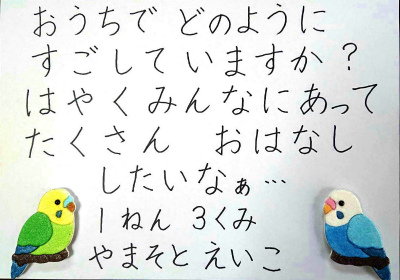 おうちで どのように
すごしていますか?
はやくみんなにあって
たくさん おはなし
したいなぁ…
1ねん 3くみ
やまそと えいこ